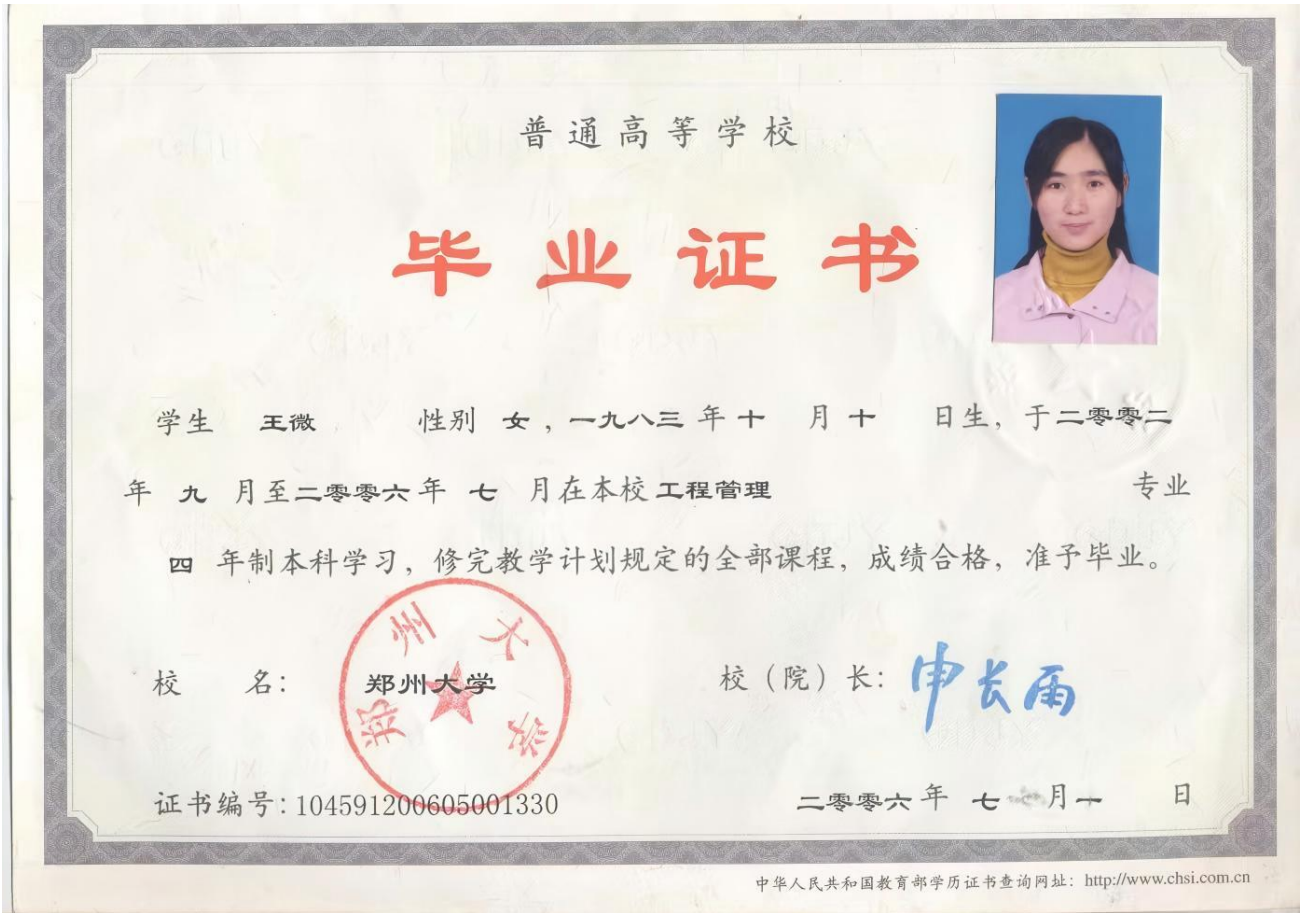 普通高等学校
毕业证书
学生 王微 性别 女，一九八三年十 月十 日生，于二零零二
年 九 月至二零零六年 七 月在本校工程管理 专业
四 年制本科学习，修完教学计划规定的全部课程，成绩合格，准予毕业。
校 名： 郑州大学
郑州大学
校（院）长：申长雨
证书编号：104591200605001330
二零零六年 七 月一 日
中华人民共和国教育部学历证书查询网址：http://www.chsi.com.cn